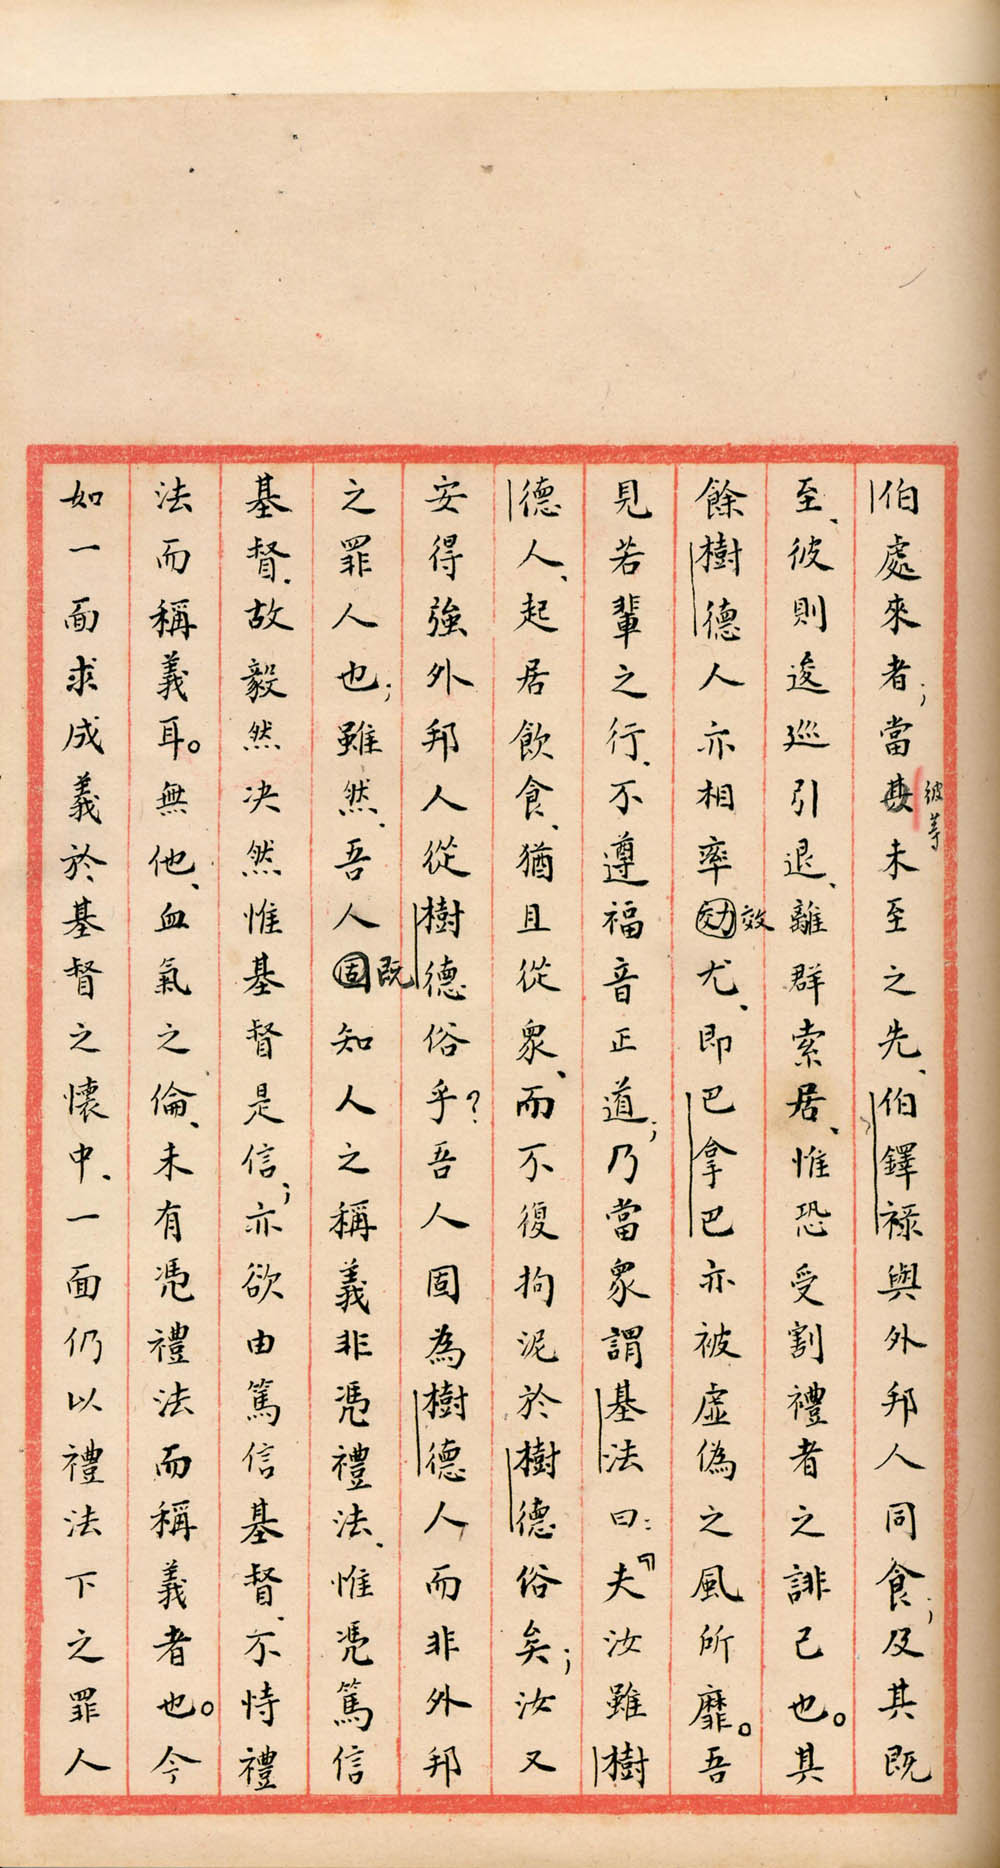 伯處來者；當彼等未至之先、伯鐸祿與外邦人同食；及其既
至、彼則逡巡引退、離群索居、惟恐受割禮者之誹己也。其
餘樹德人亦相率効效尤、即巴拿巴亦被虛偽之風所靡。吾
見若輩之行、不遵福音正道；乃當眾謂基法曰：『夫汝雖樹
德人、起居飲食、猶且從眾、而不復拘泥於樹德俗矣；汝又
安得強外邦人從樹德俗乎？吾人固為樹德人而非外邦
之罪人也；雖然、吾人固既知人之稱義非憑禮法、惟憑篤信
基督、故毅然決然惟基督是信；亦欲由篤信基督、不恃禮
法而稱義耳。無他、血氣之倫、未有憑禮法而稱義者也。今
如一面求成義於基督之懷中、一面仍以禮法下之罪人